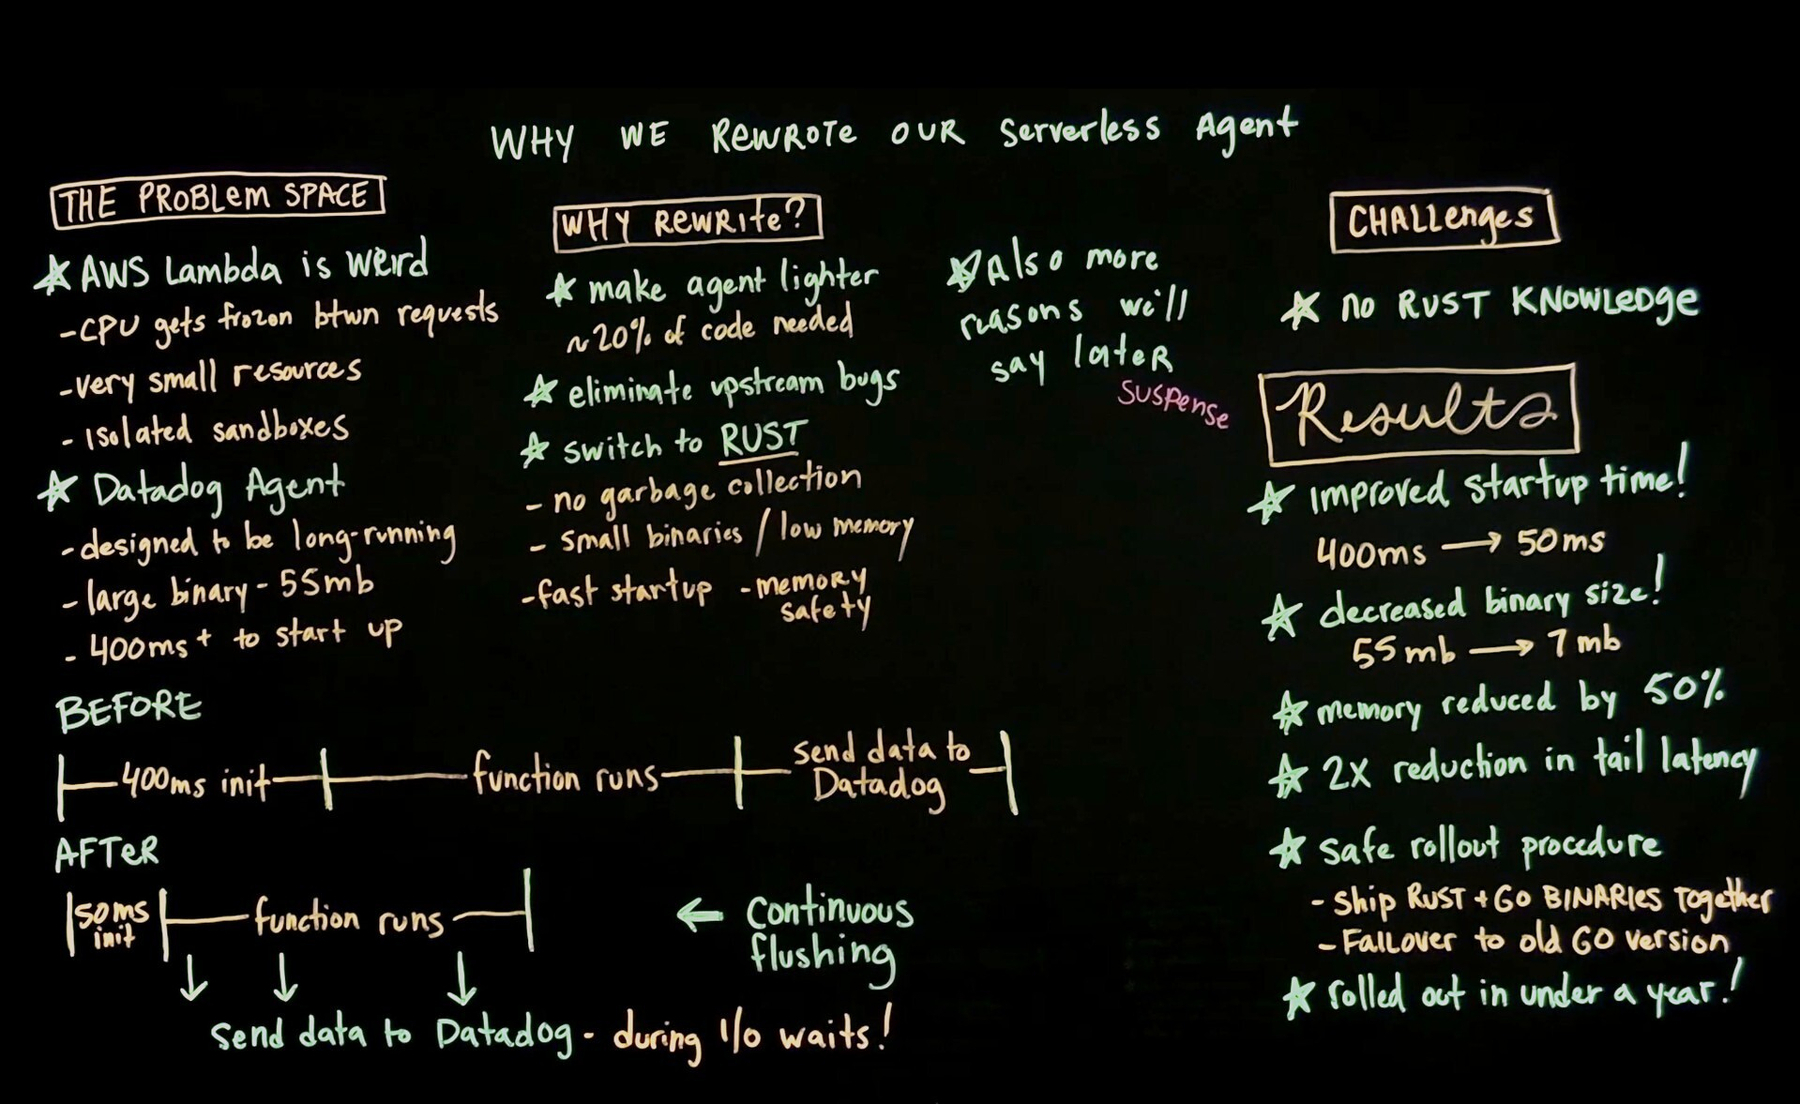 WHY WE REWROTE OUR Serverless Agent
THE PROBLEM SPACE
AWS Lambda is weird
- CPU gets frozon btwn requests
- very small resources
- Isolated sandboxes
Datadog Agent
- designed to be long-running
- large binary - 55mb
- 400ms+ to start up
WHY REWRITE?
make agent lighter
~20% of code needed
eliminate upstream bugs
switch to RUST
- no garbage collection
- small binaries / low memory
- fast startup - memory
safety
Also more
reasons we'll
say later
suspense
CHALLenges
no RUST KNOWLEDGE
Results
improved startup time!
400ms → 50ms
decreased binary size!
55mb → 7mb
memory reduced by 50%
2X reduction in tail latency
safe rollout procedure
- Ship RUST + GO BINARIES Together
- FAILOVER to old GO version
rolled out in under a year!
BEFORE
400ms init
function runs
send data to
Datadog
AFTER
50ms
init
function runs
← Continuous
flushing
Send data to Datadog - during I/O waits!